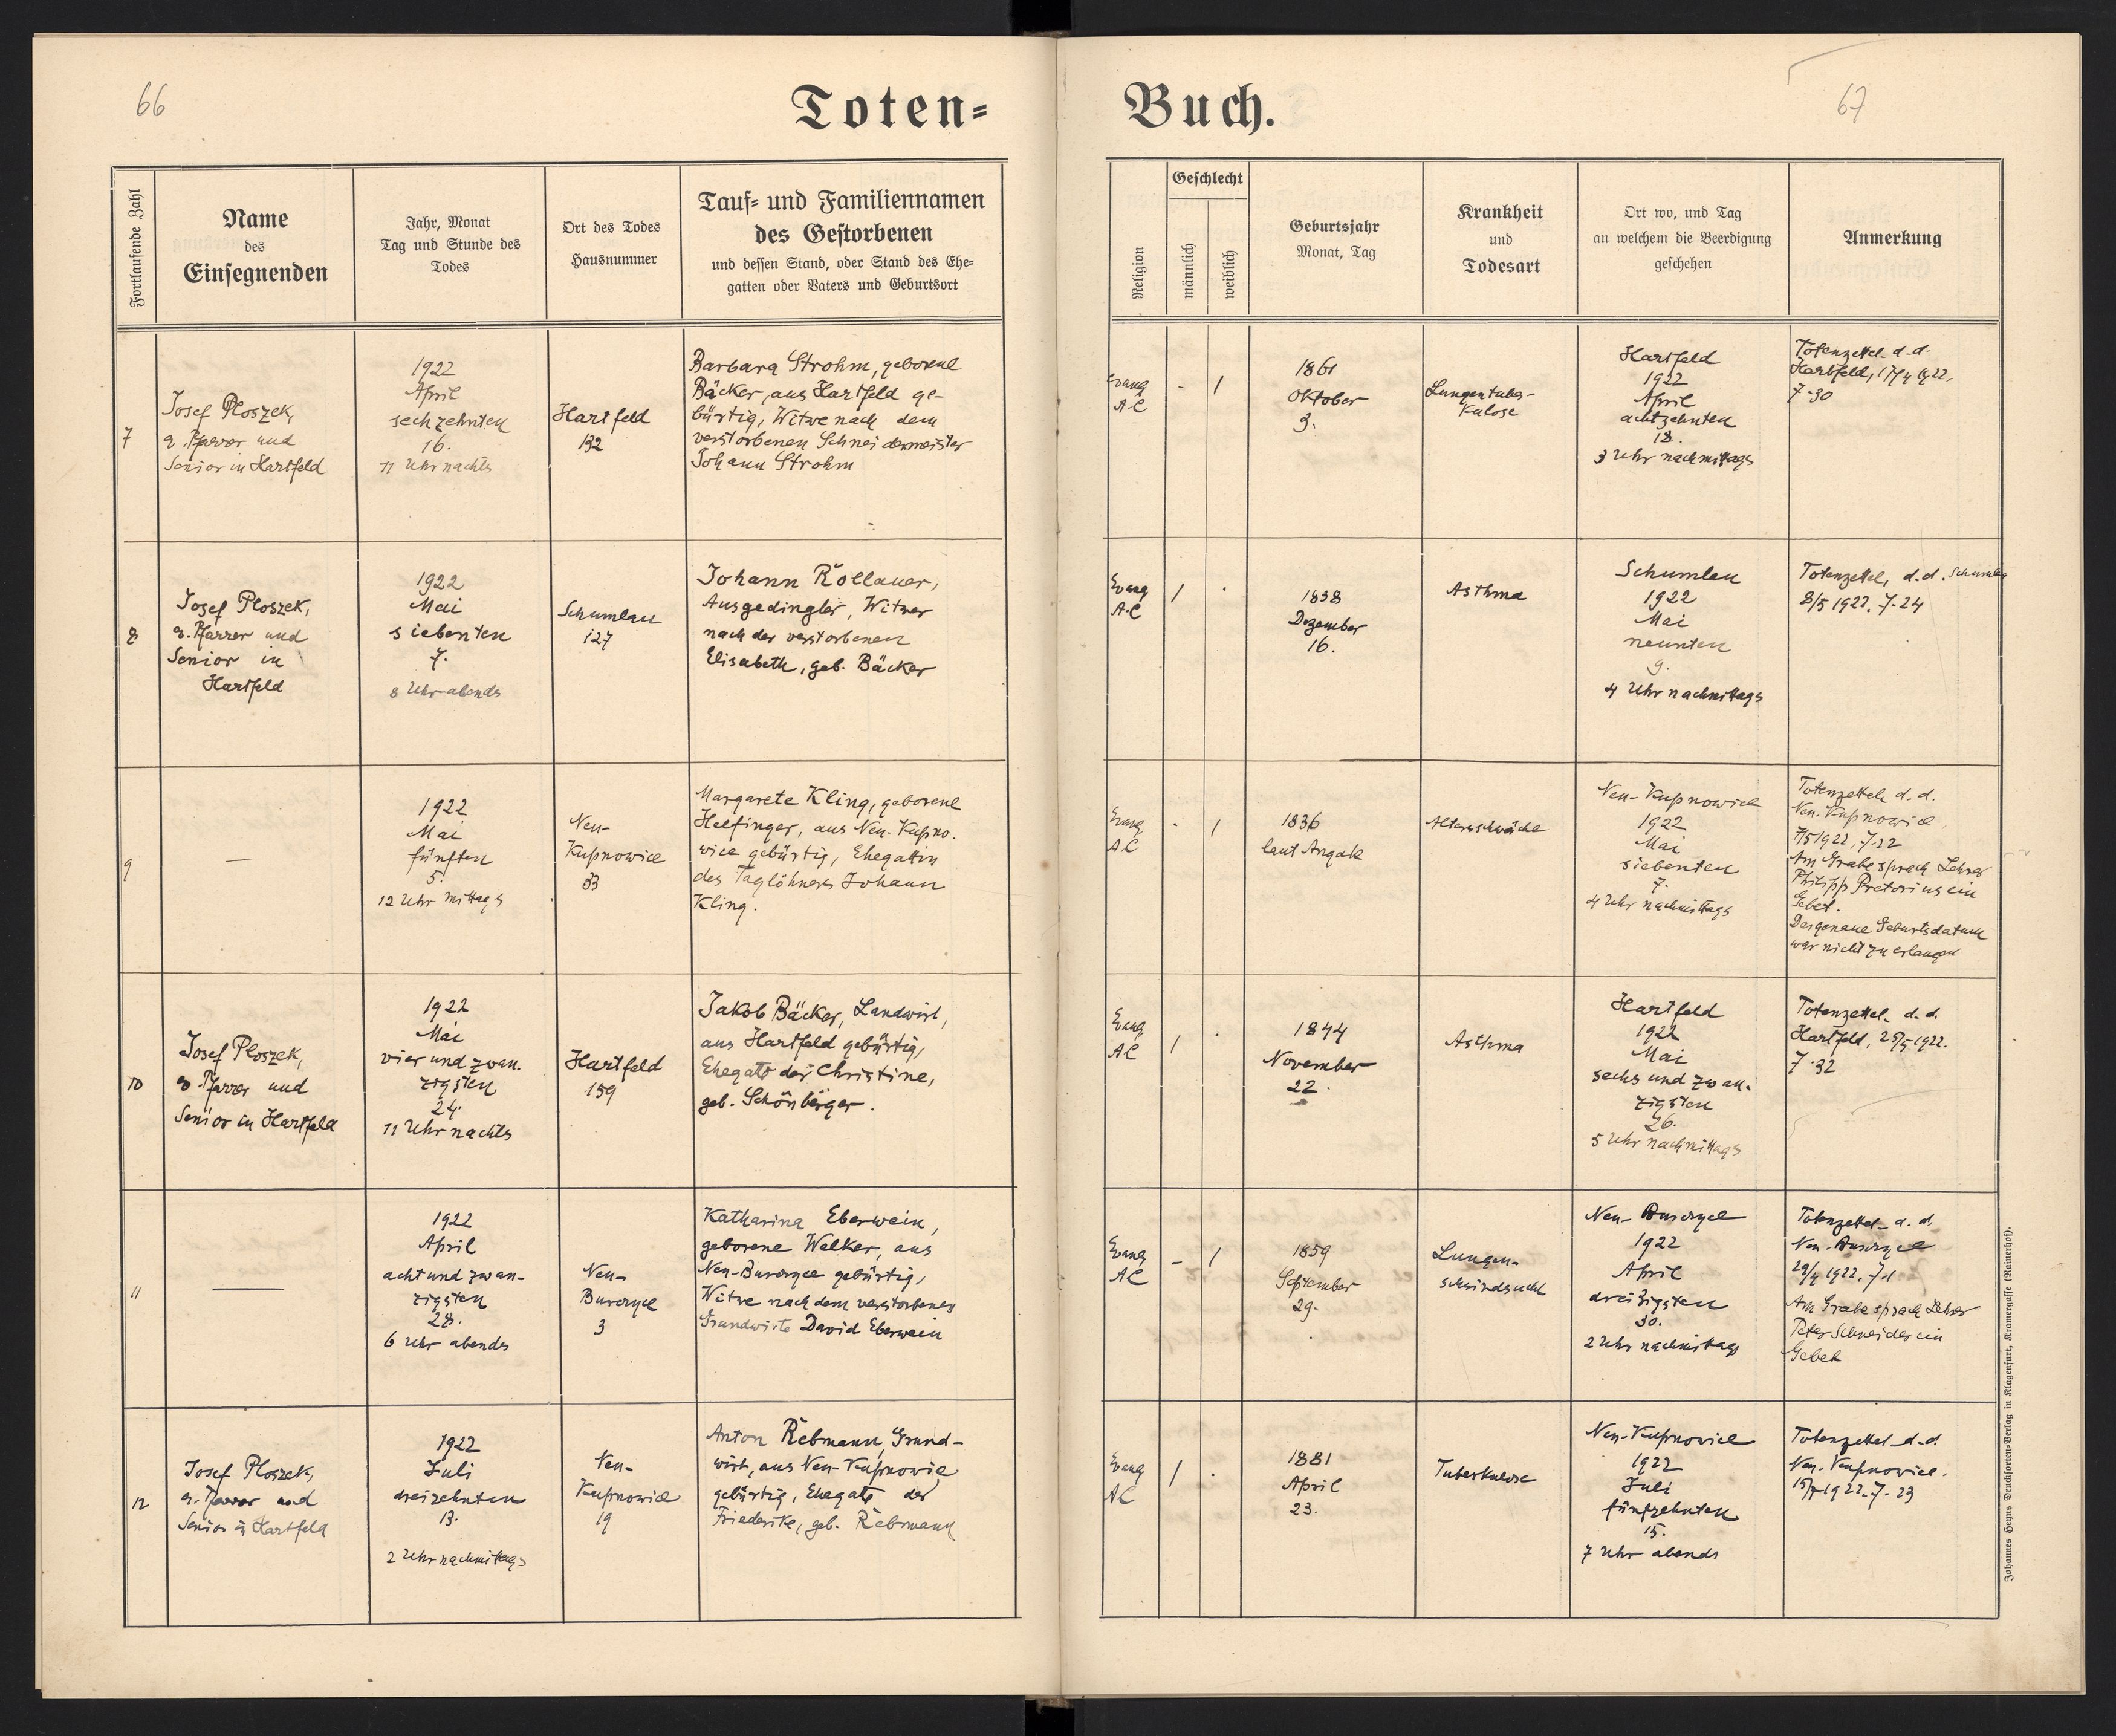 66
Toten=
Buch.
67
Fortlaufende Zahl
Name
des
Einsegnenden
Jahr, Monat
Tag und Stunde des
Todes
Ort des Todes
Hausnummer
Tauf= und Familiennamen
des Gestorbenen
und dessen Stand, oder Stand des Ehe=
gatten oder Vaters und Geburtsort
Religion
Geschlecht
männlich
weiblich
Geburtsjahr
Monat, Tag
Krankheit
und
Todesart
Ort wo, und Tag
an welchem die Beerdigung
geschehen
Anmerkung
7
Josef Ploszek,
Pfarrer und
Senior in Hartfeld
1922
April
sechzehnten
16.
11 Uhr nachts
Hartfeld
132
Barbara Strohm, geborene
Bäcker, aus Hartfeld ge-
bürtig, Witwe nach dem
verstorbenen Schneidermeister
Johann Strohm
Evang
A.C
-
1
1861
Oktober
3.
Lungentuber-
kulose
Hartfeld
1922
April
achtzehnten
18.
3 Uhr nachmittags
Totenzettel d.d.
Hartfeld, 17/4 1922,
7·30
8
Josef Ploszek,
Pfarrer und
Senior in
Hartfeld
1922
Mai
siebenten
7.
8 Uhr abends
Schumlau
127
Johann Rollauer,
Ausgedingler, Witwer
nach der verstorbenen
Elisabeth, geb. Bäcker
Evang
A.C
1
·
1838
Dezember
16.
Asthma
Schumlau
1922
Mai
neunten
9.
4 Uhr nachmittags
Totenzettel, d.d. Schumlau
8/5 1922. 7·24
9
—
1922
Mai
fünften
5.
12 Uhr mittags
Neu-
Kupnowice
33
Margarete Kling, geborene
Helfinger, aus Neu-Kupno-
wice gebürtig, Ehegattin
des Taglöhners Johann
Kling.
Evang
A.C
-
1
1836
laut Angabe
Altersschwäche
Neu-Kupnowice
1922
Mai
siebenten
7.
4 Uhr nachmittags
Totenzettel d.d.
Neu-Kupnowice
7/5 1922, 7·22
Am Grabe sprach Lehrer
Philipp Pretorius ein
Gebet.
Das genaue Geburtsdatum
war nicht zu erlangen
10
Josef Ploszek,
Pfarrer und
Senior in Hartfeld
1922
Mai
vier und zwan-
zigsten
24.
11 Uhr nachts
Hartfeld
159
Jakob Bäcker, Landwirt,
aus Hartfeld gebürtig,
Ehegatte der Christine,
geb. Schönberger.
Evang
AC
1
·
1844
November
22.
Asthma
Hartfeld
1922
Mai
sechs und zwan-
zigsten
26.
5 Uhr nachmittags
Totenzettel d.d.
Hartfeld, 25/5 1922.
7·32
11
—
1922
April
acht und zwan-
zigsten
28.
6 Uhr abends
Neu-
Burczyce
3
Katharina Eberwein,
geborene Welker, aus
Neu-Burczyce gebürtig,
Witwe nach dem verstorbenen
Grundwirte David Eberwein
Evang
AC
-
1
1859
September
29.
Lungen-
schwindsucht
Neu-Burczyce
1922
April
dreißigsten
30.
2 Uhr nachmittags
Totenzettel d.d.
Neu-Burczyce
29/4 1922. 7·1
Am Grabe sprach Lehrer
Peter Schneider ein
Gebet
12
Josef Ploszek,
Pfarrer und
Senior in Hartfeld
1922
Juli
dreizehnten
13.
2 Uhr nachmittags
Neu-
Kupnowice
19
Anton Rebmann, Grund-
wirt, aus Neu-Kupnowice
gebürtig, Ehegatte der
Friederike, geb. Rebmann
Evang
AC
1
·
1881
April
23.
Tuberkulose
Neu-Kupnowice
1922
Juli
fünfzehnten
15.
7 Uhr abends
Totenzettel d.d.
Neu-Kupnowice.
15/7 1922. 7·23
Johannes Heyns Drucksorten=Verlag in Klagenfurt, Kramergasse (Rainerhof).